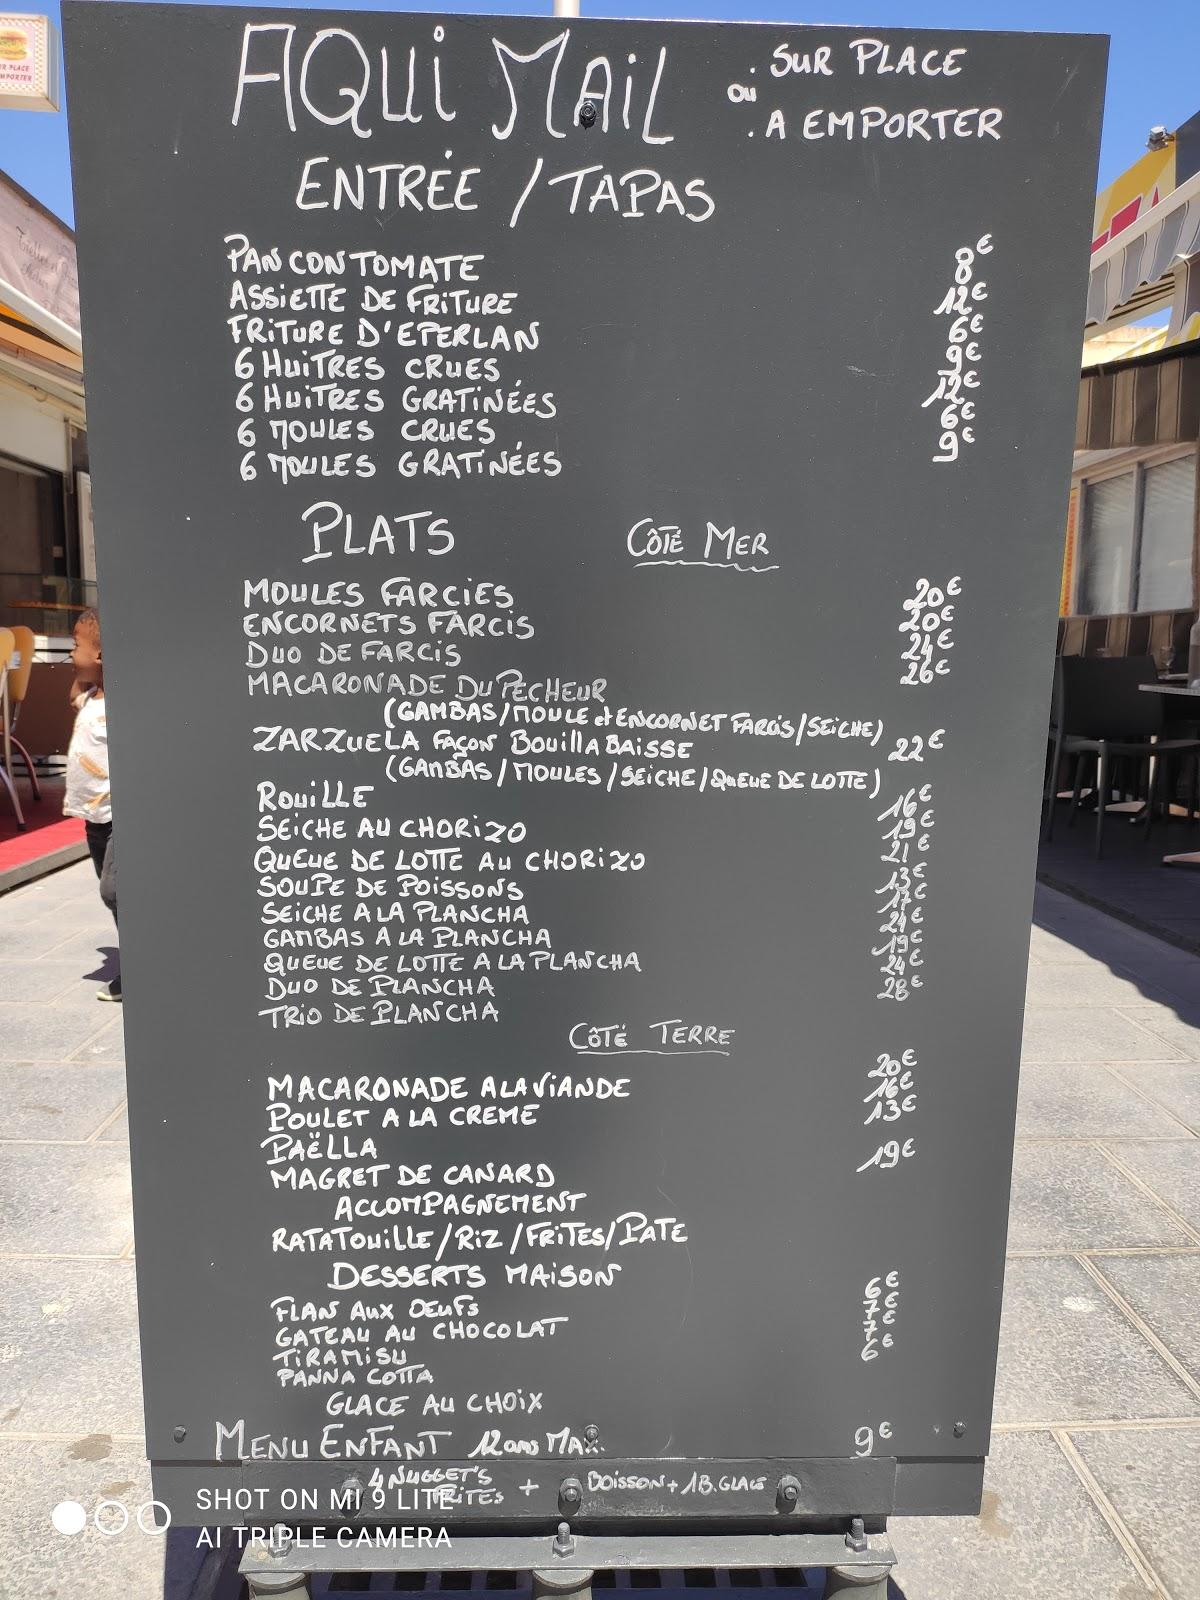 AQUi MAiL
. SUR PLACE
ou
. A EMPORTER
ENTRÉE / TAPAS
PAN CON TOMATE 8€
ASSIETTE DE FRITURE 12€
FRITURE D'EPERLAN 6€
6 HUITRES CRUES 9€
6 HUITRES GRATINÉES 12€
6 MOULES CRUES 6€
6 MOULES GRATINÉES 9€
PLATS CÔTÉ MER
MOULES FARCIES 20€
ENCORNETS FARCIS 20€
DUO DE FARCIS 24€
MACARONADE DU PECHEUR 26€
(GAMBAS/MOULE et ENCORNET FARCIS/SEICHE)
ZARZUELA FAÇON BOUILLABAISSE 22€
(GAMBAS/MOULES/SEICHE/QUEUE DE LOTTE)
ROUILLE 16€
SEICHE AU CHORIZO 19€
QUEUE DE LOTTE AU CHORIZO 21€
SOUPE DE POISSONS 13€
SEICHE A LA PLANCHA 17€
GAMBAS A LA PLANCHA 24€
QUEUE DE LOTTE A LA PLANCHA 19€
DUO DE PLANCHA 24€
TRIO DE PLANCHA 28€
CÔTÉ TERRE
MACARONADE A LA VIANDE 20€
POULET A LA CREME 16€
PAËLLA 13€
MAGRET DE CANARD 19€
ACCOMPAGNEMENT
RATATOUILLE/RIZ/FRITES/PATE
DESSERTS MAISON
FLAN AUX OEUFS 6€
GATEAU AU CHOCOLAT 7€
TIRAMISU 7€
PANNA COTTA 6€
GLACE AU CHOIX
MENU ENFANT 12 ans MAX. 9€
4 NUGGET'S
FRITES + BOISSON + 1B. GLACE
SHOT ON MI 9 LITE
AI TRIPLE CAMERA